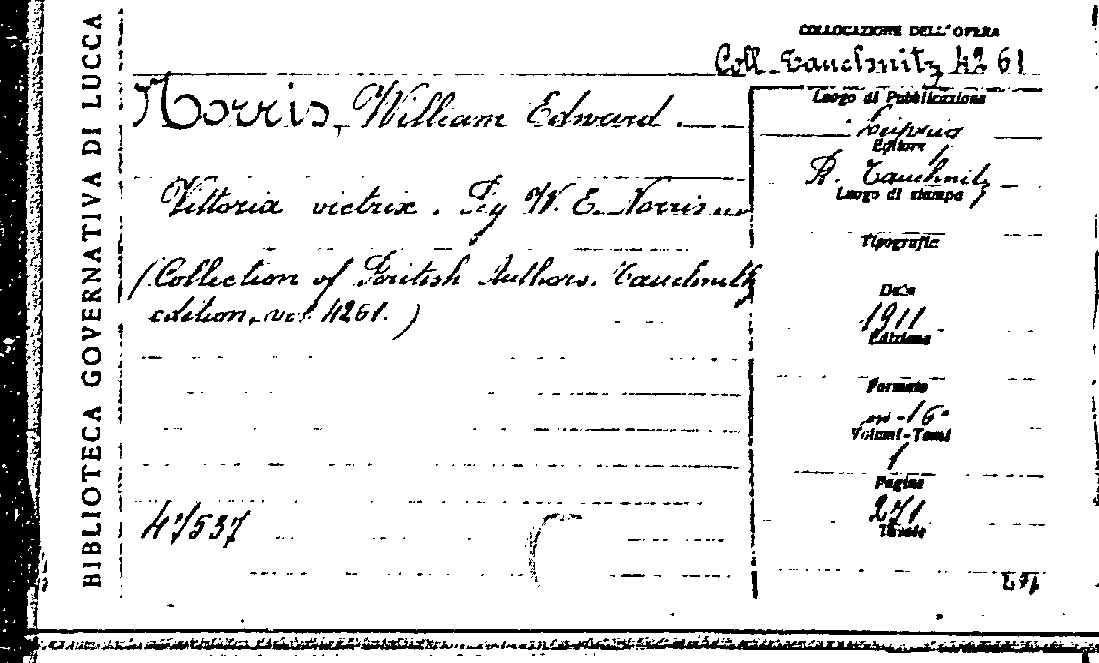 BIBLIOTECA GOVERNATIVA DI LUCCA
COLLOCAZIONE DELL'OPERA
Coll. Tauchnitz 4261
Norris, William Edward.
Vittoria victrix. By W. E. Norris
(Collection of British Authors. Tauchnitz
edition, vol. 4261.)
47537
Luogo di Pubblicazione
Leipzig
Editore
B. Tauchnitz
Luogo di stampa
Tipografia
Data
1911
Edizione
Formato
in-16°
Volumi-Tomi
1
Pagine
271